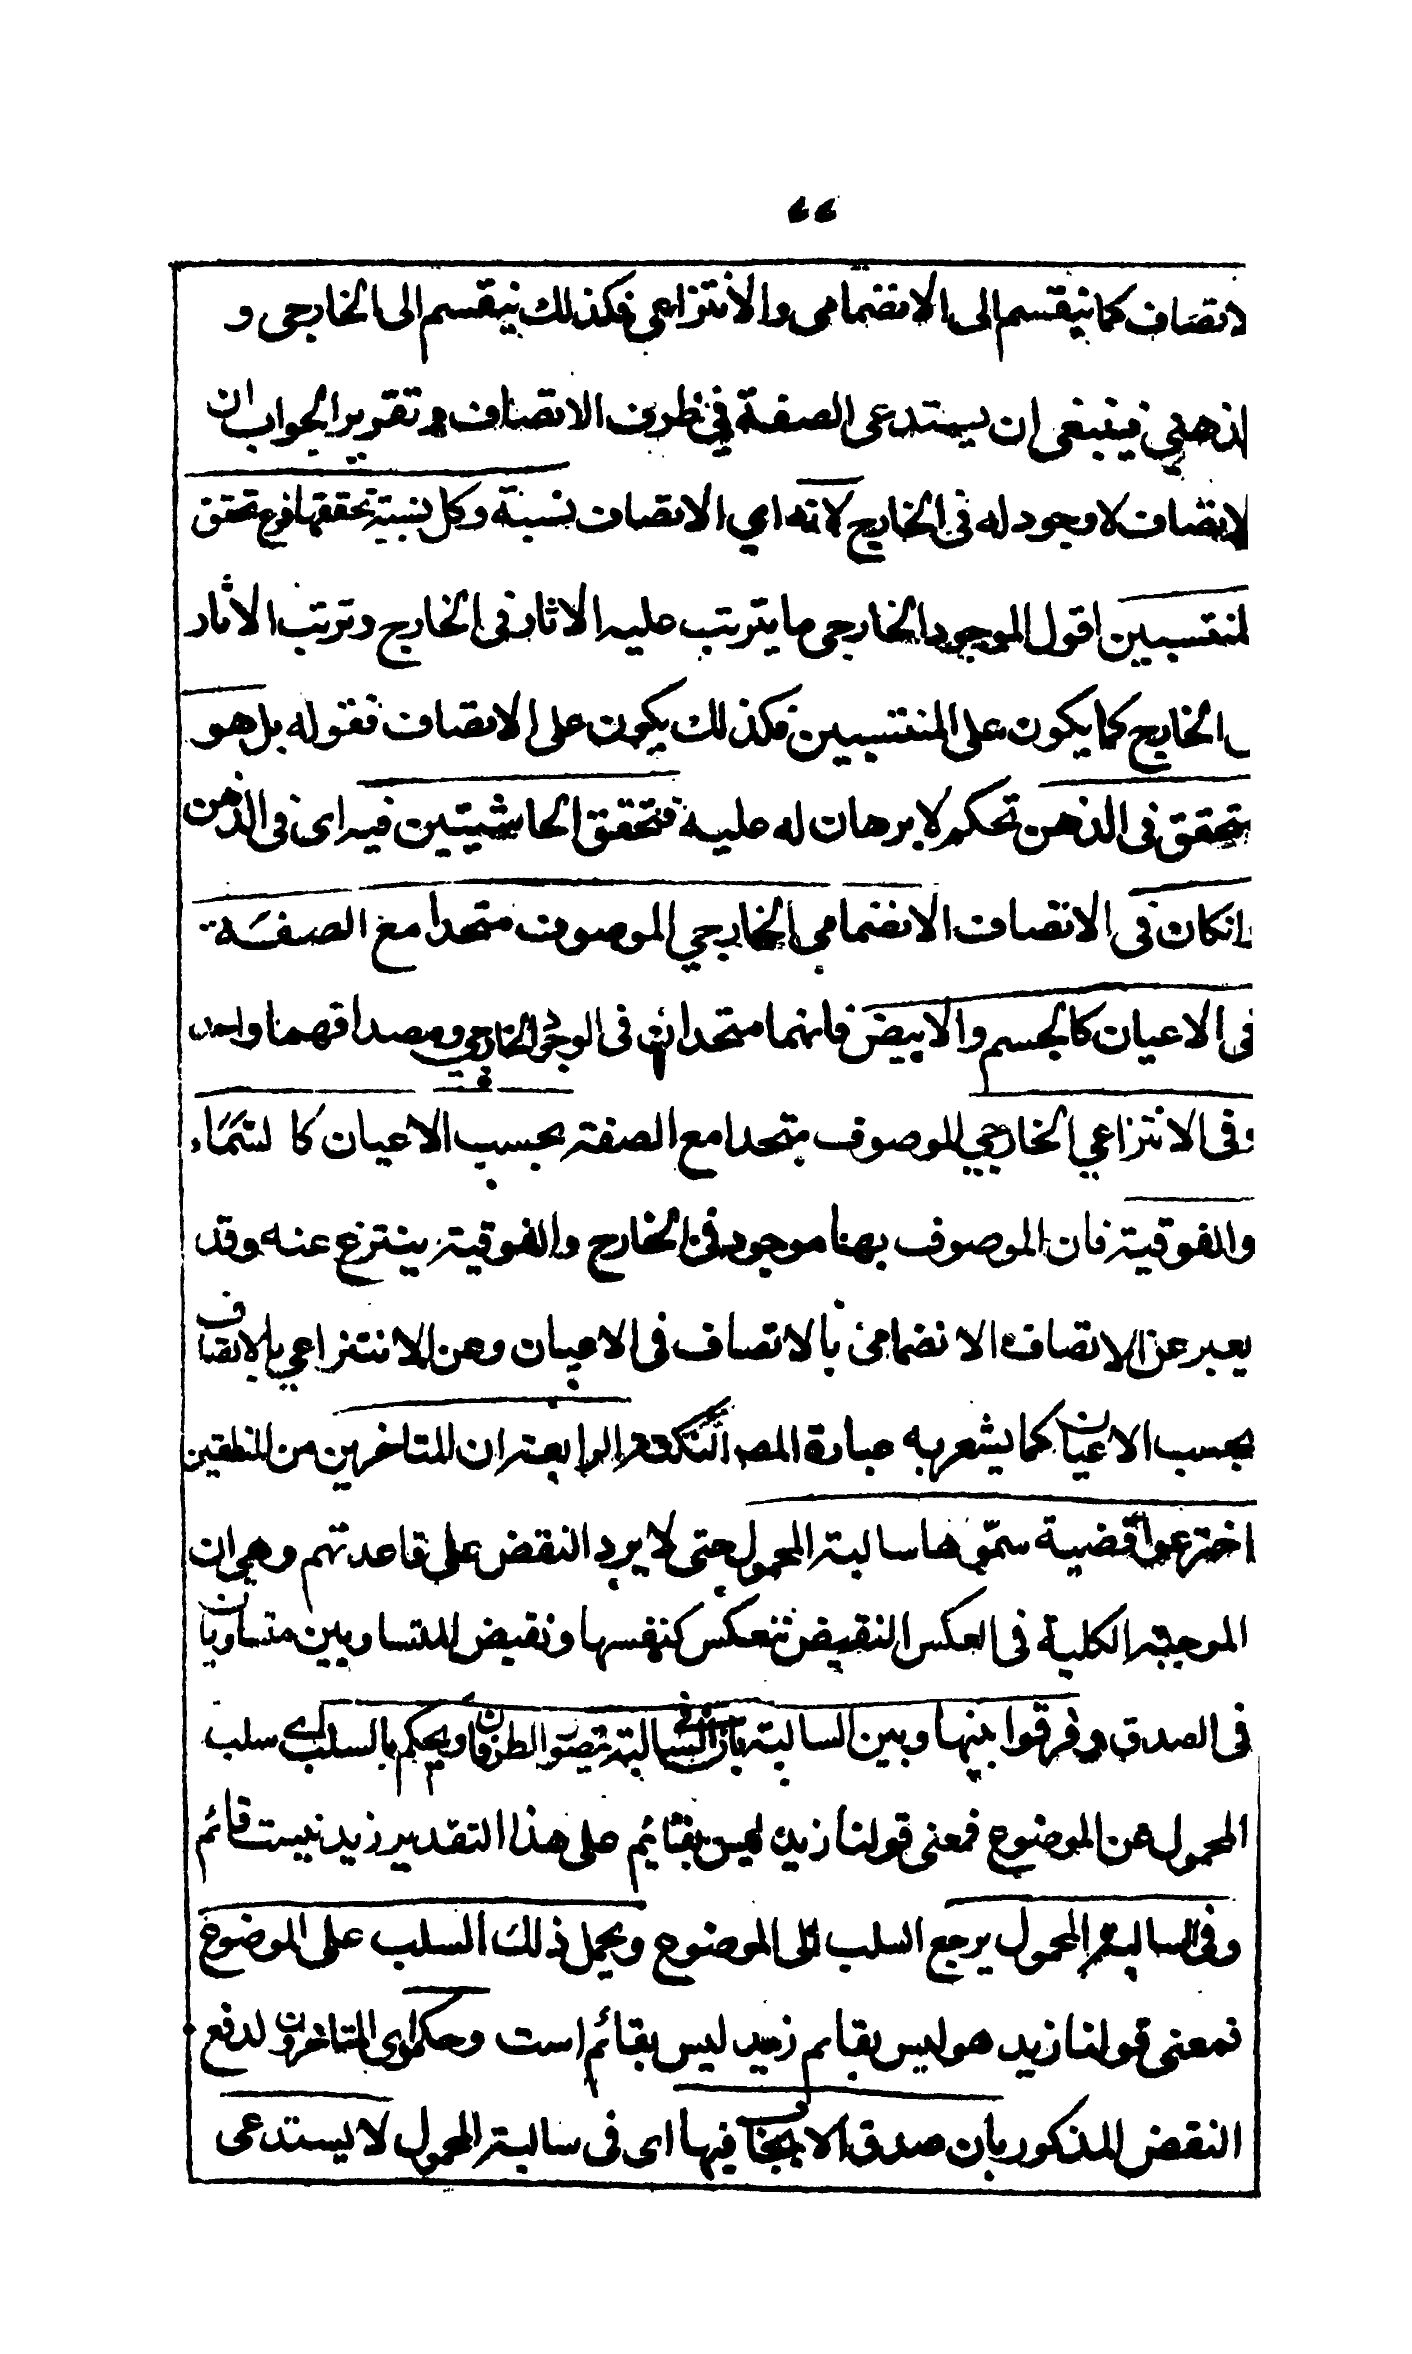 ٦٦
لاتصاف كما ينقسم الى الانضمامى والانتزاعى فكذلك ينقسم الى الخارجى و
لذهنى فينبغى ان يستدعى الصفة فى ظرف الاتصاف م تقرير الجواب ان
لاتصاف لا وجود له فى الخارج لانه اى الاتصاف نسبة وكل نسبة تحققها فرع تحقق
لمنتسبين اقول الموجود الخارجى ما يترتب عليه الاثار فى الخارج وترتب الاثار
الخارج كما يكون على المنتسبين فكذلك يكون على الاتصاف فقوله بل هو
يتحقق فى الذهن تحكم لا برهان له عليه فتحقق الحاشيتين فيه اى فى الذهن
وانكان فى الاتصاف الانضمامى الخارجى الموصوف متحدا مع الصفة
فى الاعيان كالجسم والابيض فانهما متحدان فى الوجود الخارجى ومصداقهما واحد
وفى الانتزاعى الخارجى الموصوف متحدا مع الصفة بحسب الاعيان كالسماء
والفوقية فان الموصوف بهنا موجود فى الخارج والفوقية ينتزع عنه وقد
يعبر عن الاتصاف الانضمامى بالاتصاف فى الاعيان وعن الانتزاعى بالاتصاف
بحسب الاعيان كما يشعر به عبارة المص النكتة الرابعة ان للمتاخرين من المنطقين
اخترعوا قضية سمّوها سالبة المحمول حتى لا يرد النقض على قاعدتهم وهى ان
الموجبة الكلية فى العكس النقيض تنعكس كنفسها ونقيض المتساويين متساويان
فى الصدق وفرقوا بينها وبين السالبة بان فى السالبة يتصور الطرفان ويحكم بالسلب اى سلب
المحمول عن الموضوع فمعنى قولنا زيد ليس بقائم على هذا التقدير زيد نيست قائم
وفى السالبة المحمول يرجع السلب الى الموضوع ويحمل ذلك السلب على الموضوع
فمعنى قولنا زيد هو ليس بقائم زيد ليس بقائم است وحكموا اى المتاخرون لدفع
النقض المذكور بان صدق الايجاب فيها اى فى سالبة المحمول لا يستدعى